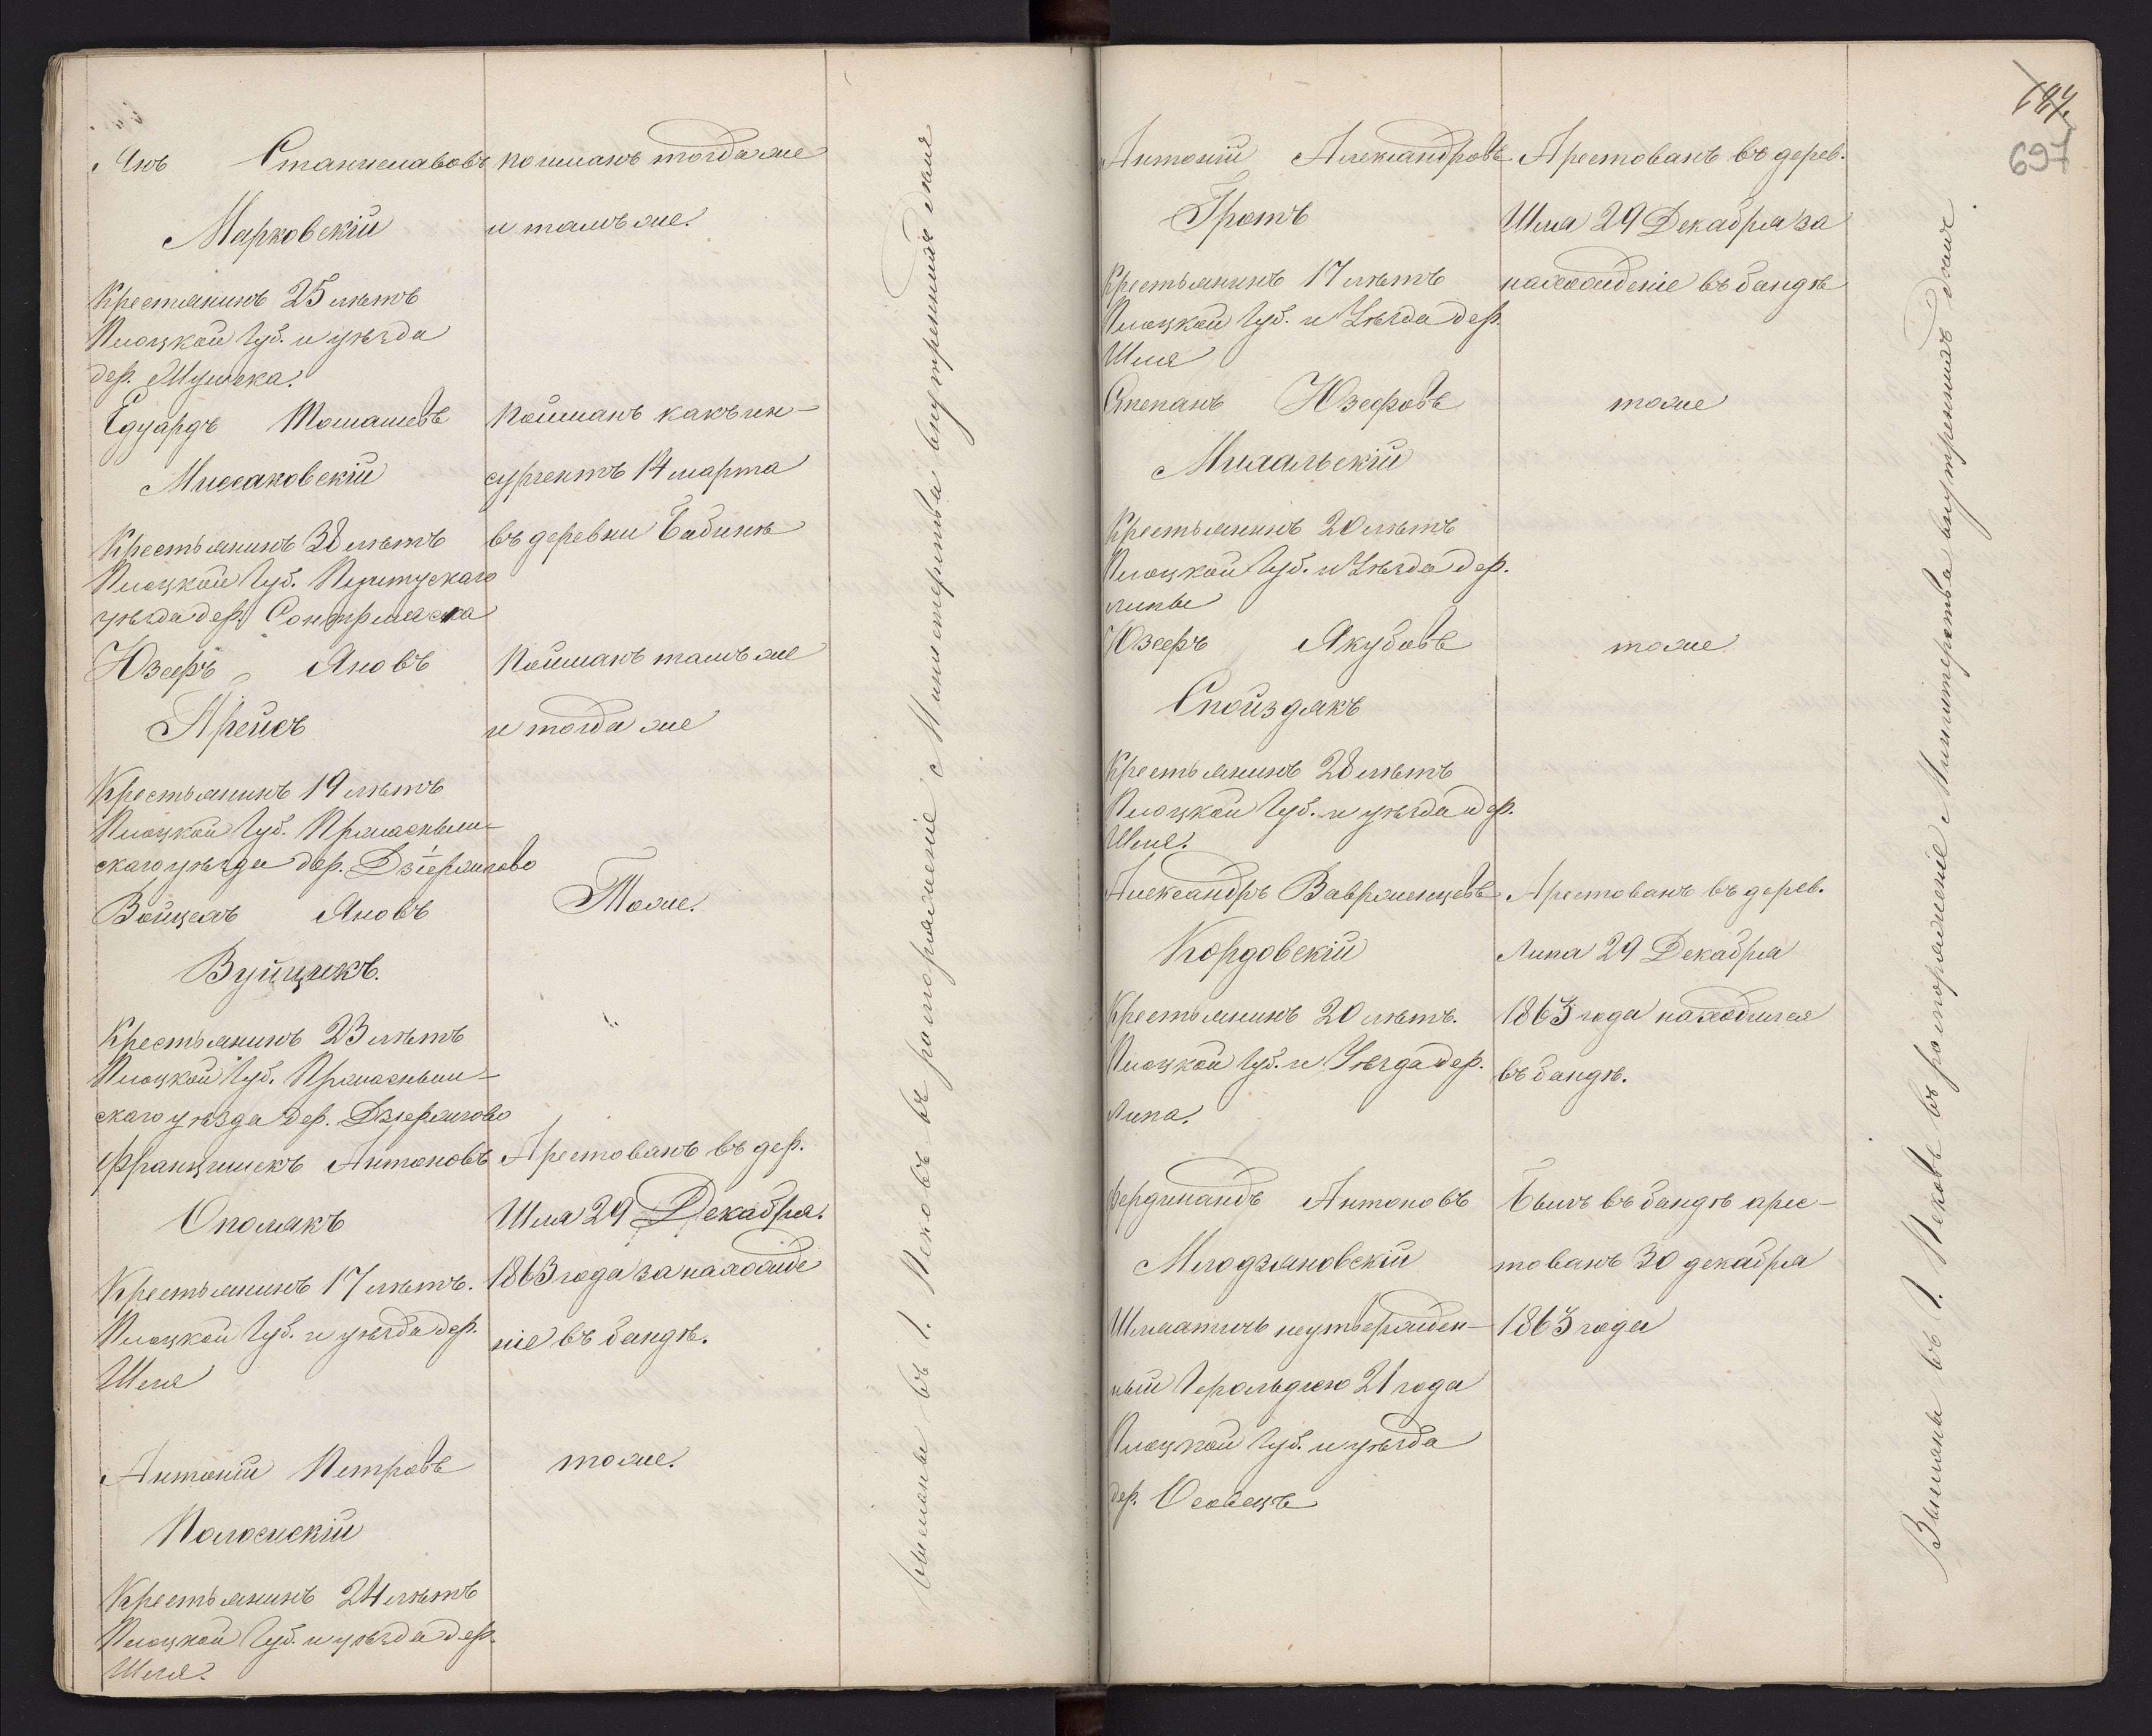 Янъ Станиславовъ пойманъ тогда же
Марковскій и тамъ же.
Крестьянинъ 25 лѣтъ
Плоцкой Губ. и уѣзда
дер.
Едуардъ Томашевъ Пойманъ какъ ин-
Миссаковскій сургентъ 14 марта
Крестьянинъ 38 лѣтъ въ деревни Бабинѣ
Плоцкой Губ. Пултускаго
уѣзда дер.
Юзефъ Яновъ Пойманъ тамъ же
Прейсъ и тогда же
Крестьянинъ 19 лѣтъ
Плоцкой Губ. Пржасныш-
скаго уѣзда дер. Дзержгово
Войцехъ Яновъ Тоже.
Вуйцикъ.
Крестьянинъ 23 лѣтъ
Плоцкой Губ. Пржасныш-
скаго уѣзда дер. Дзержгово
Францишекъ Антоновъ Арестованъ въ дер.
Ополякъ Шля 29 Декабря.
Крестьянинъ 17 лѣтъ. 1863 года за нахожде
Плоцкой Губ. и уѣзда дер. ніе въ бандѣ.
Шля
Антоній Петровъ тоже.
Крестьянинъ 24 лѣтъ
Плоцкой Губ. и уѣзда дер.
Шля.
Высланы въ г. Псковъ въ распоряженіе Министерства внутреннихъ дѣлъ
697
Антоній Александровъ Арестованъ въ дерев.
Гротъ Шля 29 Декабря за
Крестьянинъ 17 лѣтъ нахожденіе въ бандѣ
Плоцкой Губ. и Уѣзда дер.
Шля
Степанъ Юзефовъ тоже
Михальскій
Крестьянинъ 20 лѣтъ
Плоцкой Губ. и Уѣзда дер.
липы
Юзефъ Якубовъ тоже
Спойздякъ
Крестьянинъ 28 лѣтъ
Плоцкой Губ. и уѣзда дер.
Шля.
Александръ Вавржинцевъ Арестованъ въ дерев.
Кордовскій Липа 29 Декабря
Крестьянинъ 20 лѣтъ. 1863 года находился
Плоцкой Губ. и Уѣзда дер. въ бандѣ.
Липа.
Фердинандъ Антоновъ Былъ въ бандѣ арес-
Млодзяновскій тованъ 30 декабря
Шляхтичъ неутвержден- 1863 года
ный Герольдіею 21 года
Плоцкой Губ. и уѣзда
дер. Осовецъ
Высланы въ г. Псковъ въ распоряженіе Министерства внутреннихъ дѣлъ.